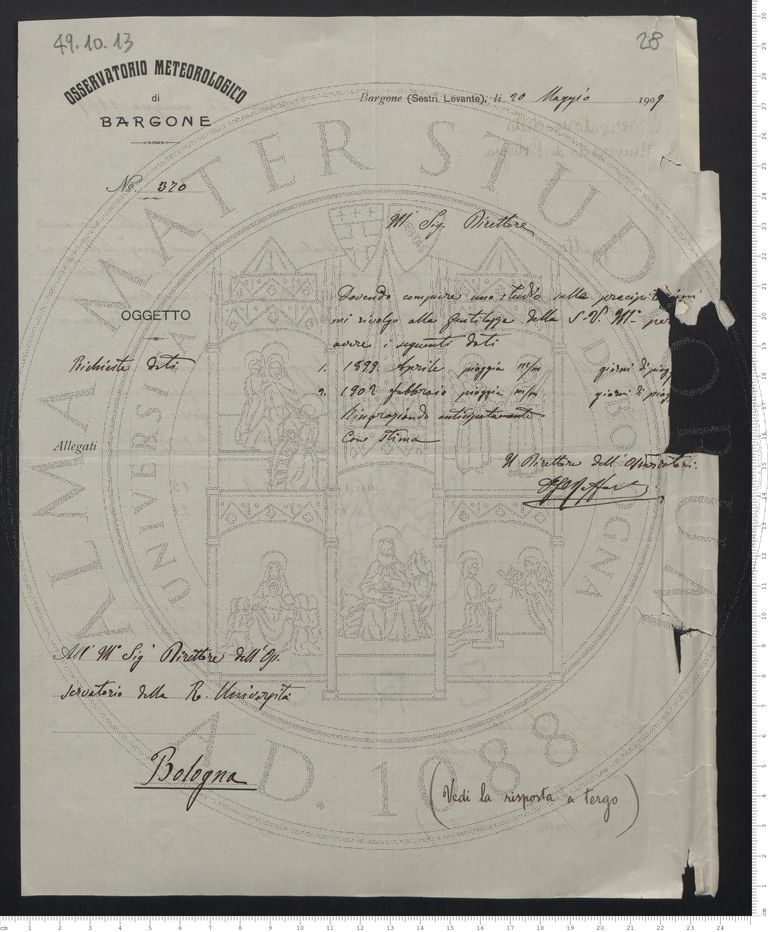 49.10.13
28
OSSERVATORIO METEOROLOGICO
di
BARGONE
Bargone (Sestri Levante), li 20 Maggio 1909
No. 370
Ill. Sig. Direttore
OGGETTO
Richiesta dati
Allegati
Dovendo compiere uno studio sulle precipitazioni
mi rivolgo alla gentilezza della S. V. Ill. per
avere i seguenti dati
1. 1899 Aprile pioggia m/m giorni di piog
2. 1902 febbraio pioggia m/m giorni di piog
Ringraziando anticipatamente
Con stima
Il Direttore dell'
All' Ill. Sig. Direttore dell'Os-
servatorio della R. Università
Bologna
(Vedi la risposta a tergo)
ALMA MATER STUDIORUM
UNIVERSITÀ DI BOLOGNA
A.D. 1088